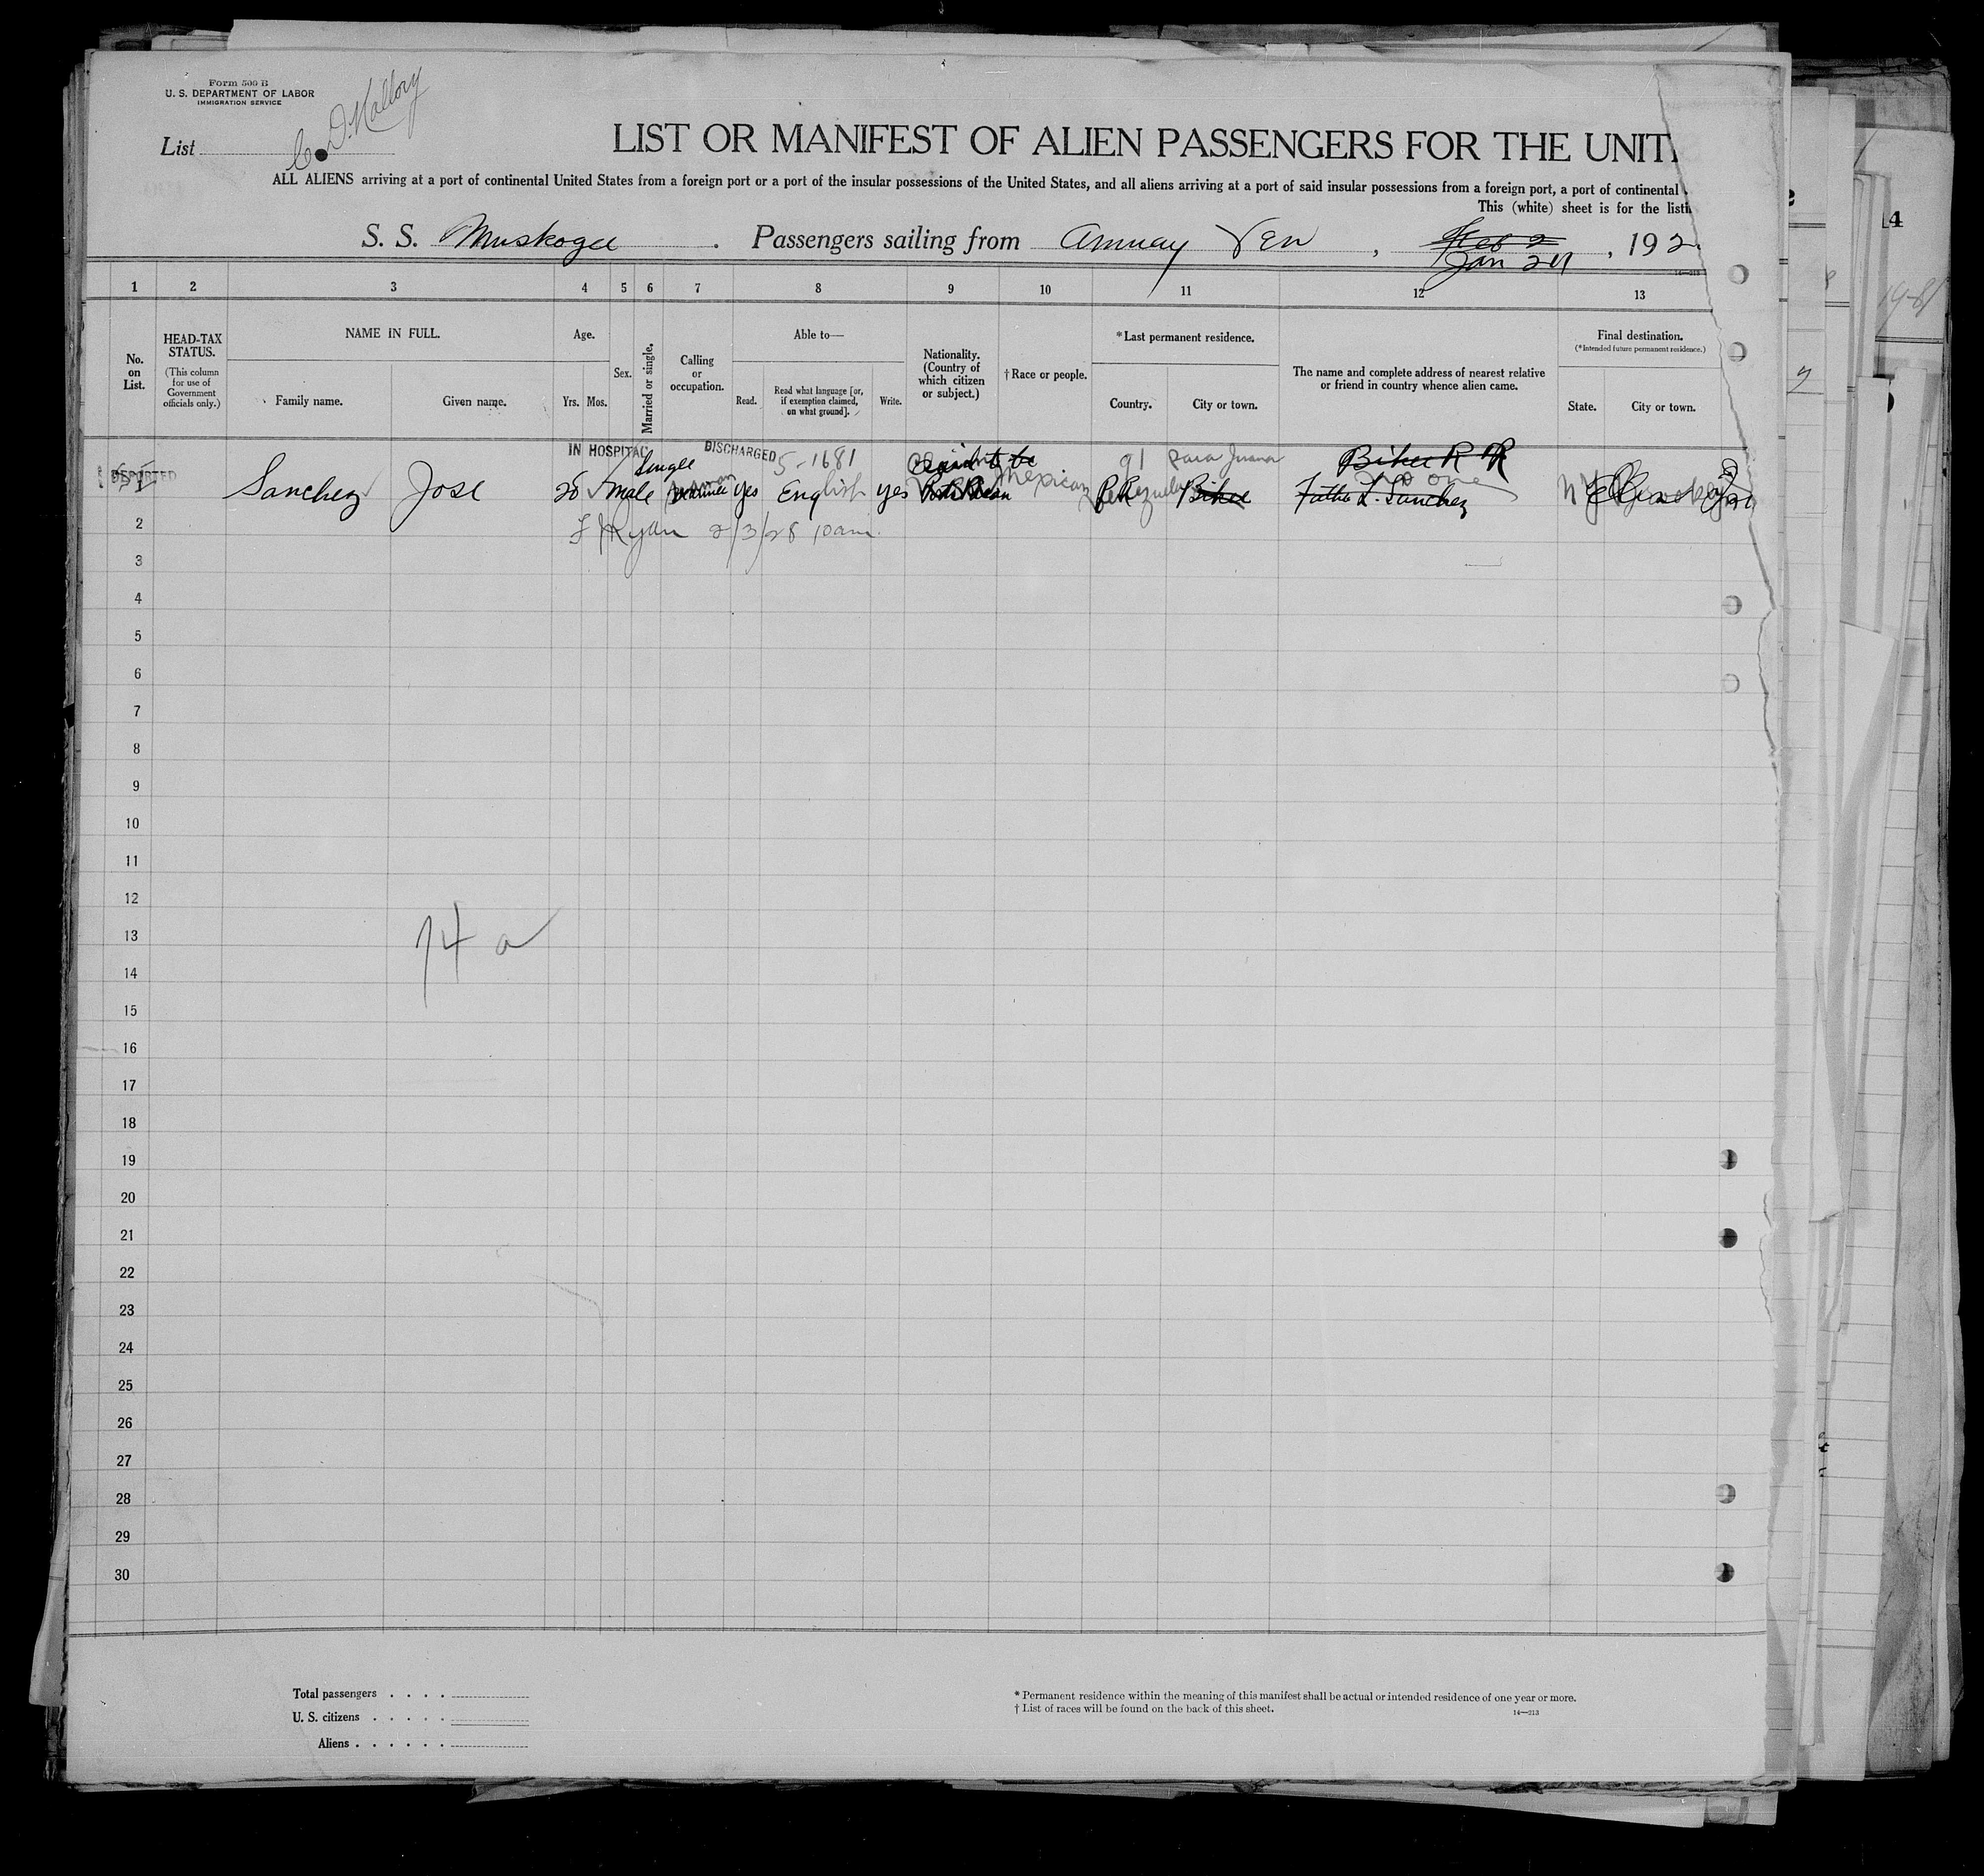 Form 500 B
U. S. DEPARTMENT OF LABOR
IMMIGRATION SERVICE
C. D. Mallory
List
LIST OR MANIFEST OF ALIEN PASSENGERS FOR THE UNIT
ALL ALIENS arriving at a port of continental United States from a foreign port or a port of the insular possessions of the United States, and all aliens arriving at a port of said insular possessions from a foreign port, a port of continental
This (white) sheet is for the listi
S. S. Muskogee . Passengers sailing from Amuay Ven , Feb 2 Jan 24 , 192
1 2 3 4 5 6 7 8 9 10 11 12 13
No. on List.
HEAD-TAX STATUS.
(This column for use of Government officials only.)
NAME IN FULL.
Family name. Given name.
Age.
Yrs. Mos.
Sex.
Married or single.
Calling or occupation.
Able to—
Read. Read what language [or, if exemption claimed, on what ground]. Write.
Nationality. (Country of which citizen or subject.)
† Race or people.
* Last permanent residence.
Country. City or town.
The name and complete address of nearest relative or friend in country whence alien came.
Final destination.
(* Intended future permanent residence.)
State. City or town.
IN HOSPITAL DISCHARGED 5-1681 91
DEPORTED
1 Sanchez Jose male Single yes English yes Mexican P.R. Venezuela Father L. Sanchez no one NY
2 2/3/28 10am
3
4
5
6
7
8
9
10
11
12
13
74 a
14
15
16
17
18
19
20
21
22
23
24
25
26
27
28
29
30
Total passengers . . . .
U. S. citizens . . . . .
Aliens . . . . . .
* Permanent residence within the meaning of this manifest shall be actual or intended residence of one year or more.
† List of races will be found on the back of this sheet.
14—213